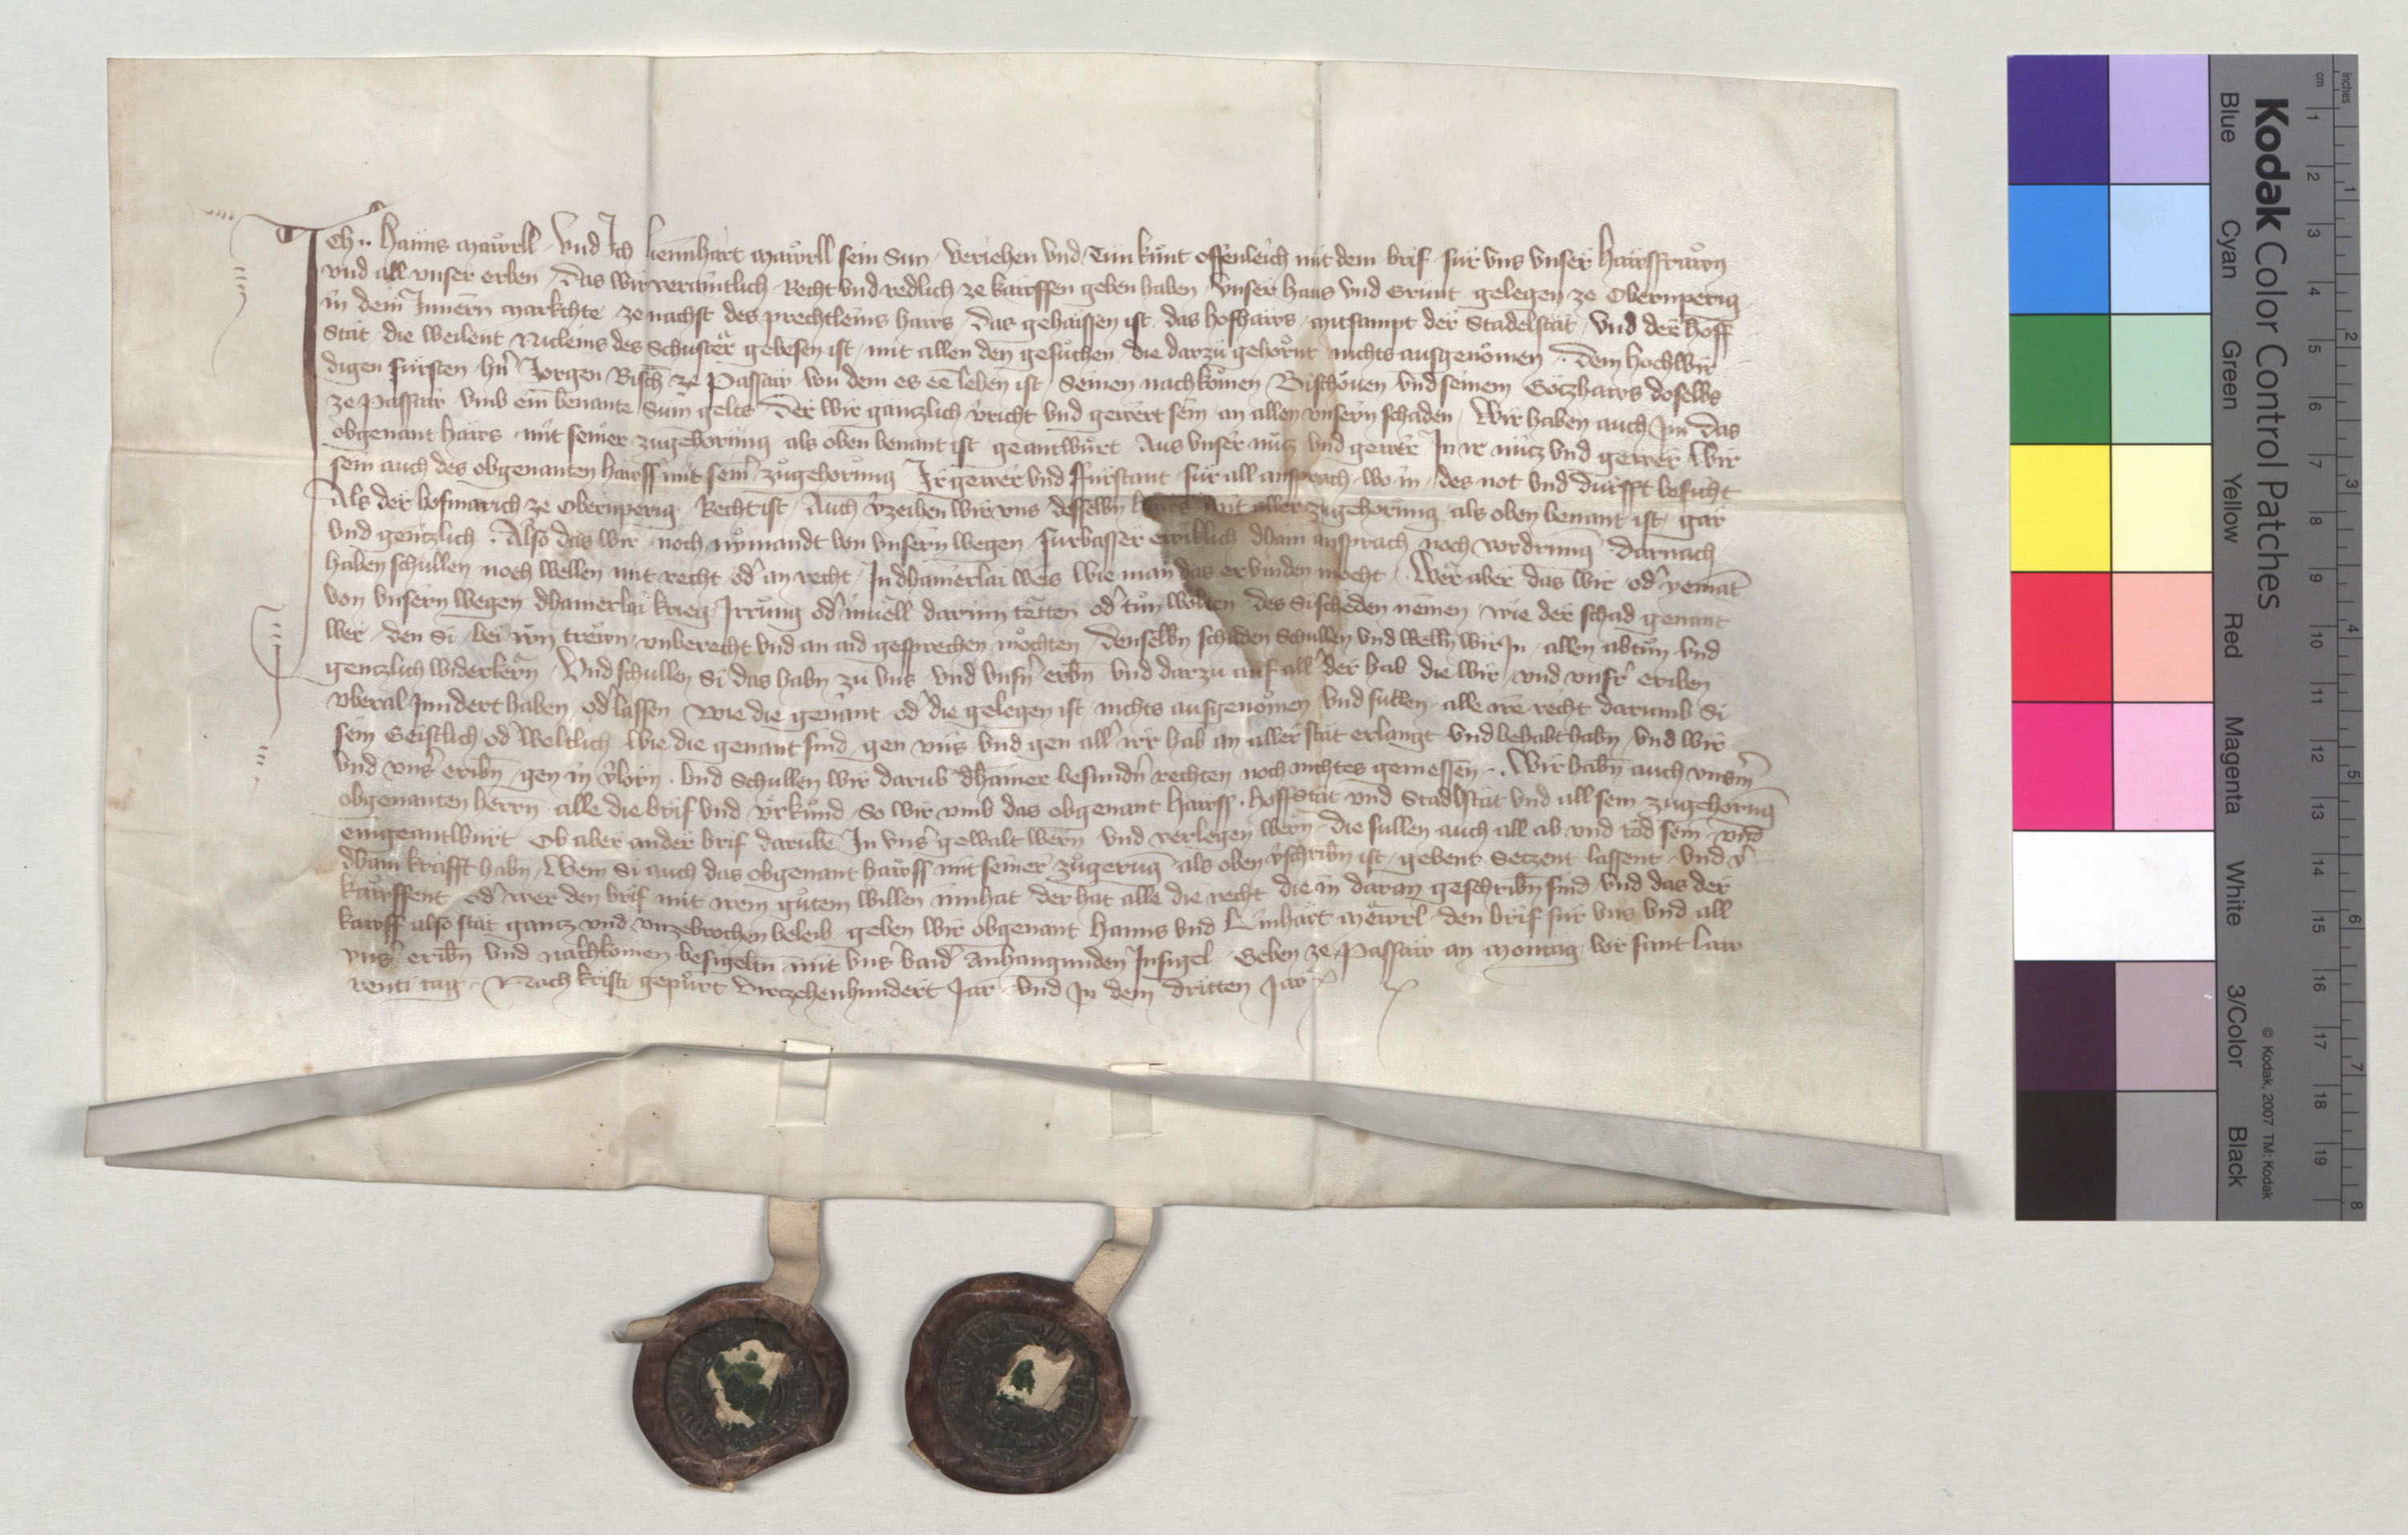 Ich Hanns Mawrll Vnd Ich Liennhart Mawrll sein Sun Veriehen vnd Tun kunt offenleich mit dem brif fur vns vnser hawsfrawn
vnd all vnser erben Das wir veraintlich Recht vnd redlich ze kawffen geben haben Vnser haus vnd Grunt gelegen ze Obernperig
in dem Innern markchte ze nachst des prechtleins haws das gehaissen ist das hofhaws mitsampt der Stadelstat Vnd der hoff
stat die weilent Nicleins des Schuster gebesen ist mit allen den gesuchen die darzu gehornt nichts ausgenomen Dem hochwir
digen fursten hern Jorgen Bisch ze Passaw von dem es ee lehen ist Seinen nachkomen Bischouen vnd seinem Gotzhaws doselbs
ze Passaw vmb ein benante Sum gelts der wir gantzlich vricht vnd gewert sein an allen vnsern schaden Wir haben auch Im das
obgenant haws mit seiner zugehorung als oben benant ist geantwurt Aus vnser nutz vnd gewer In ir nutz vnd gewer Wir
sein auch des obgenanten hawss mit seiner zugehorung Ir gewer vnd Furstant fur all ansprach wo in des not vnd durfft beschicht
Als der hofmarich ze Obernperig Recht ist Auch vzeihen wir vns desselbn haws mit aller zugehorung als oben benant ist gar
vnd gentzlich Also das wir noch nymandt von vnsern wegen furbasser ewiklich dhain ansprach noch vordrung darnach
haben schullen noch wellen mit recht od an recht In dhainerlai weis Wie man das ervinden mocht Wer aber das wir od yemant
von vnsern wegen dhainerlai krieg Irrung od inuell darinn tetten od tun wolten des Si scheden nemen wie der schad genant
wer den Si bei irn trewn vnberecht vnd an aid gesprechen mochten denselbn schaden Schullen vnd welln wir In allen abtun vnd
gentzlich widerkern Vnd schullen Si das habn zu vns vnd vnsn erbn vnd darzu auf all der hab die wir vnd vnsr erben
vberal Inndert haben od lassen wie die genant od die gelegen ist nichts ausgenomen vnd sullen alle ire recht darumb Si
sein Geistlich od Weltlich wie die genant sind gen vns vnd gen all irr hab an aller stat erlangt vnd behabt habn vnd wir
vnd vnser eribn gen in vlorn vnd Schullen wir darub dhainer besundn rechten noch nichtes geniessen Wir habn auch vnserm
obgenanten herrn alle die brif vnd vrkund So wir vmb das obgenant hawss hoffstat vnd Stadlstat vnd all sein zugehorug
eingeantwurt Ob aber ander brif darube In vns gewalt wern vnd verlegen wern die sullen auch all ab vnd tod sein vnd
dhain krafft habn Wem Si auch das obgenant hawss mit seiner zugerug als oben vschribn ist gebent Setzent lassent vnd v
kawffent od wer den brif mit irem gutem willen innhat der hat alle die recht die in daran geschribn sind Vnd das der
kawff also stat gantz vnd vnzebrochen beleib geben wir obgenant Hanns vnd Linhart Mawrl den brif fur vns vnd all
vns eribn vnd nachkomen besigeltn mit vns baid Anhangunden Insigel Geben ze Passaw an Montag vor sant Law
renti tag Nach kristi gepurt Virczehenhundert Jar vnd In dem dritten Jar
Kodak Color Control Patches
Blue Cyan Green Yellow Red Magenta White 3/Color Black
© Kodak, 2007 TM: Kodak
cm 1 2 3 4 5 6 7 8 9 10 11 12 13 14 15 16 17 18 19
inches 1 2 3 4 5 6 7 8